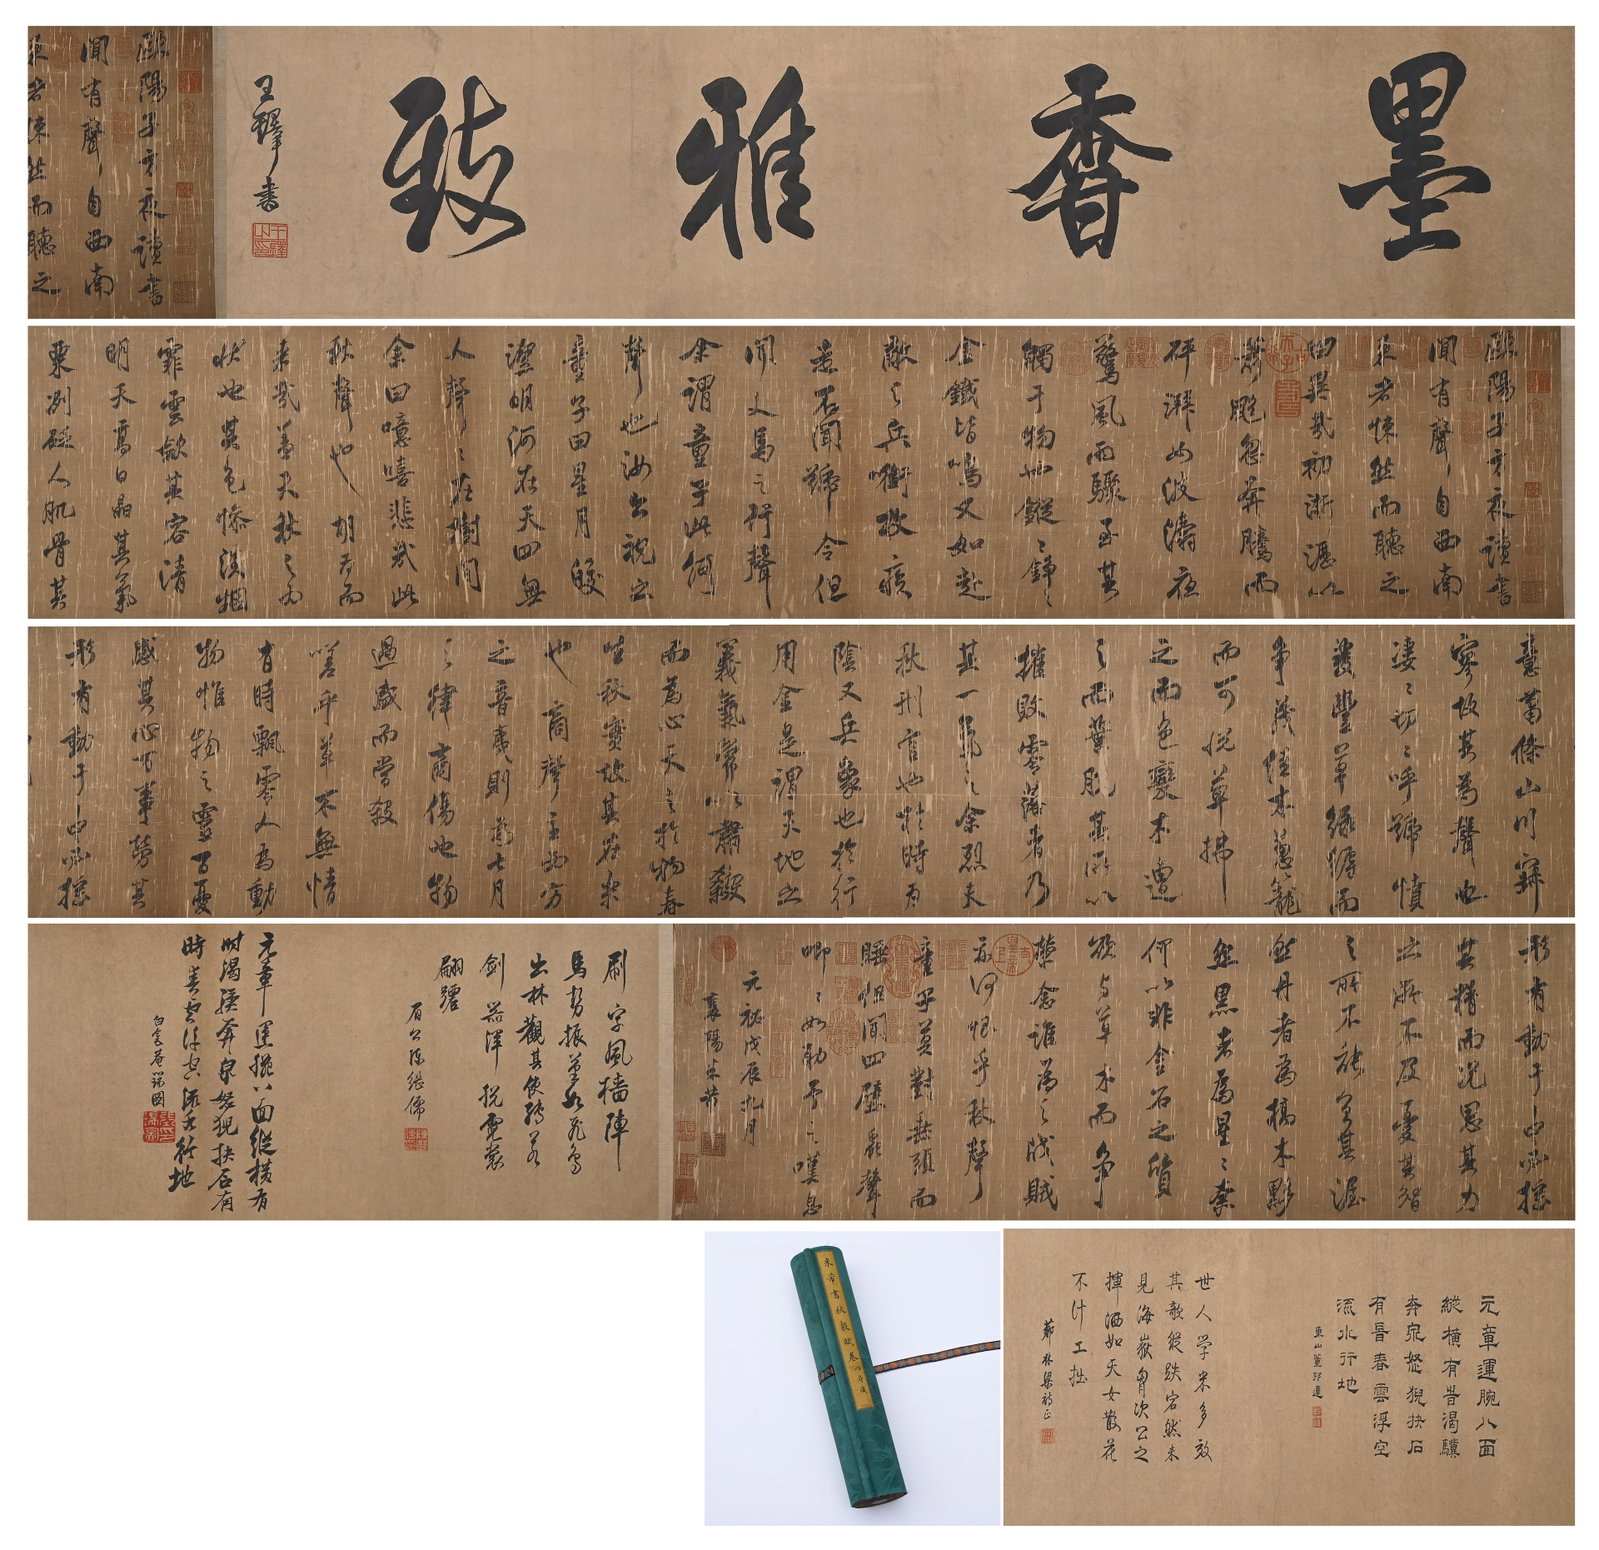 墨香雅致
王鐸書
歐陽子方夜讀書
聞有聲自西南
來者悚然而聽之
歐陽子方夜讀書
聞有聲自西南
來者悚然而聽之
曰異哉初淅瀝以
蕭颯忽奔騰而
砰湃如波濤夜
驚風雨驟至其
觸于物也鏦〻錚〻
金鐵皆鳴又如赴
敵之兵銜枚疾
走不聞號令但
聞人馬之行聲
余謂童子此何
聲也汝出視之
童子曰星月皎
潔明河在天四無
人聲〻在樹間
余曰噫嘻悲哉此
秋聲也胡為而
來哉蓋夫秋之為
狀也其色慘淡烟
霏雲歛其容清
明天高日晶其氣
栗冽砭人肌骨其
意蕭條山川寂
寥故其為聲也
淒〻切〻呼號憤
發豐草綠縟而
爭茂佳木蔥籠
而可悅草拂
之而色變木遭
之而葉脫其所以
摧敗零落者乃
其一氣之餘烈夫
秋刑官也於時為
陰又兵象也於行
用金是謂天地之
義氣常以肅殺
而為心天之於物春
生秋實故其在樂
也商聲主西方
之音夷則為七月
之律商傷也物
過盛而當殺
嗟乎草木無情
有時飄零人為動
物惟物之靈百憂
感其心萬事勞其
形有動于中必搖
形有動于中必搖
其精而況思其力
之所不及憂其智
之所不能宜其渥
然丹者為槁木黟
然黑者為星〻奈
何以非金石之質
欲與草木而爭
榮念誰為之戕賊
亦何恨乎秋聲
童子莫對垂頭而
睡但聞四壁蟲聲
唧〻如助予之嘆息
元祐戊辰九月
襄陽米芾
刷字風檣陣
馬勢振筆如飛鳥
出林觀其使轉若
劍器渾脫霓裳
翩躚
眉公陳繼儒
元章運腕八面縱橫有
時渴驥奔泉怒猊抉石有
時春雲浮空流水行地
米芾書秋聲賦卷
元章運腕八面
縱橫有時渴驥
奔泉怒猊抉石
有時春雲浮空
流水行地
東山董邦達
世人學米多效
其欹縱跌宕然未
見海嶽胷次公之
揮洒如天女散花
不計工拙